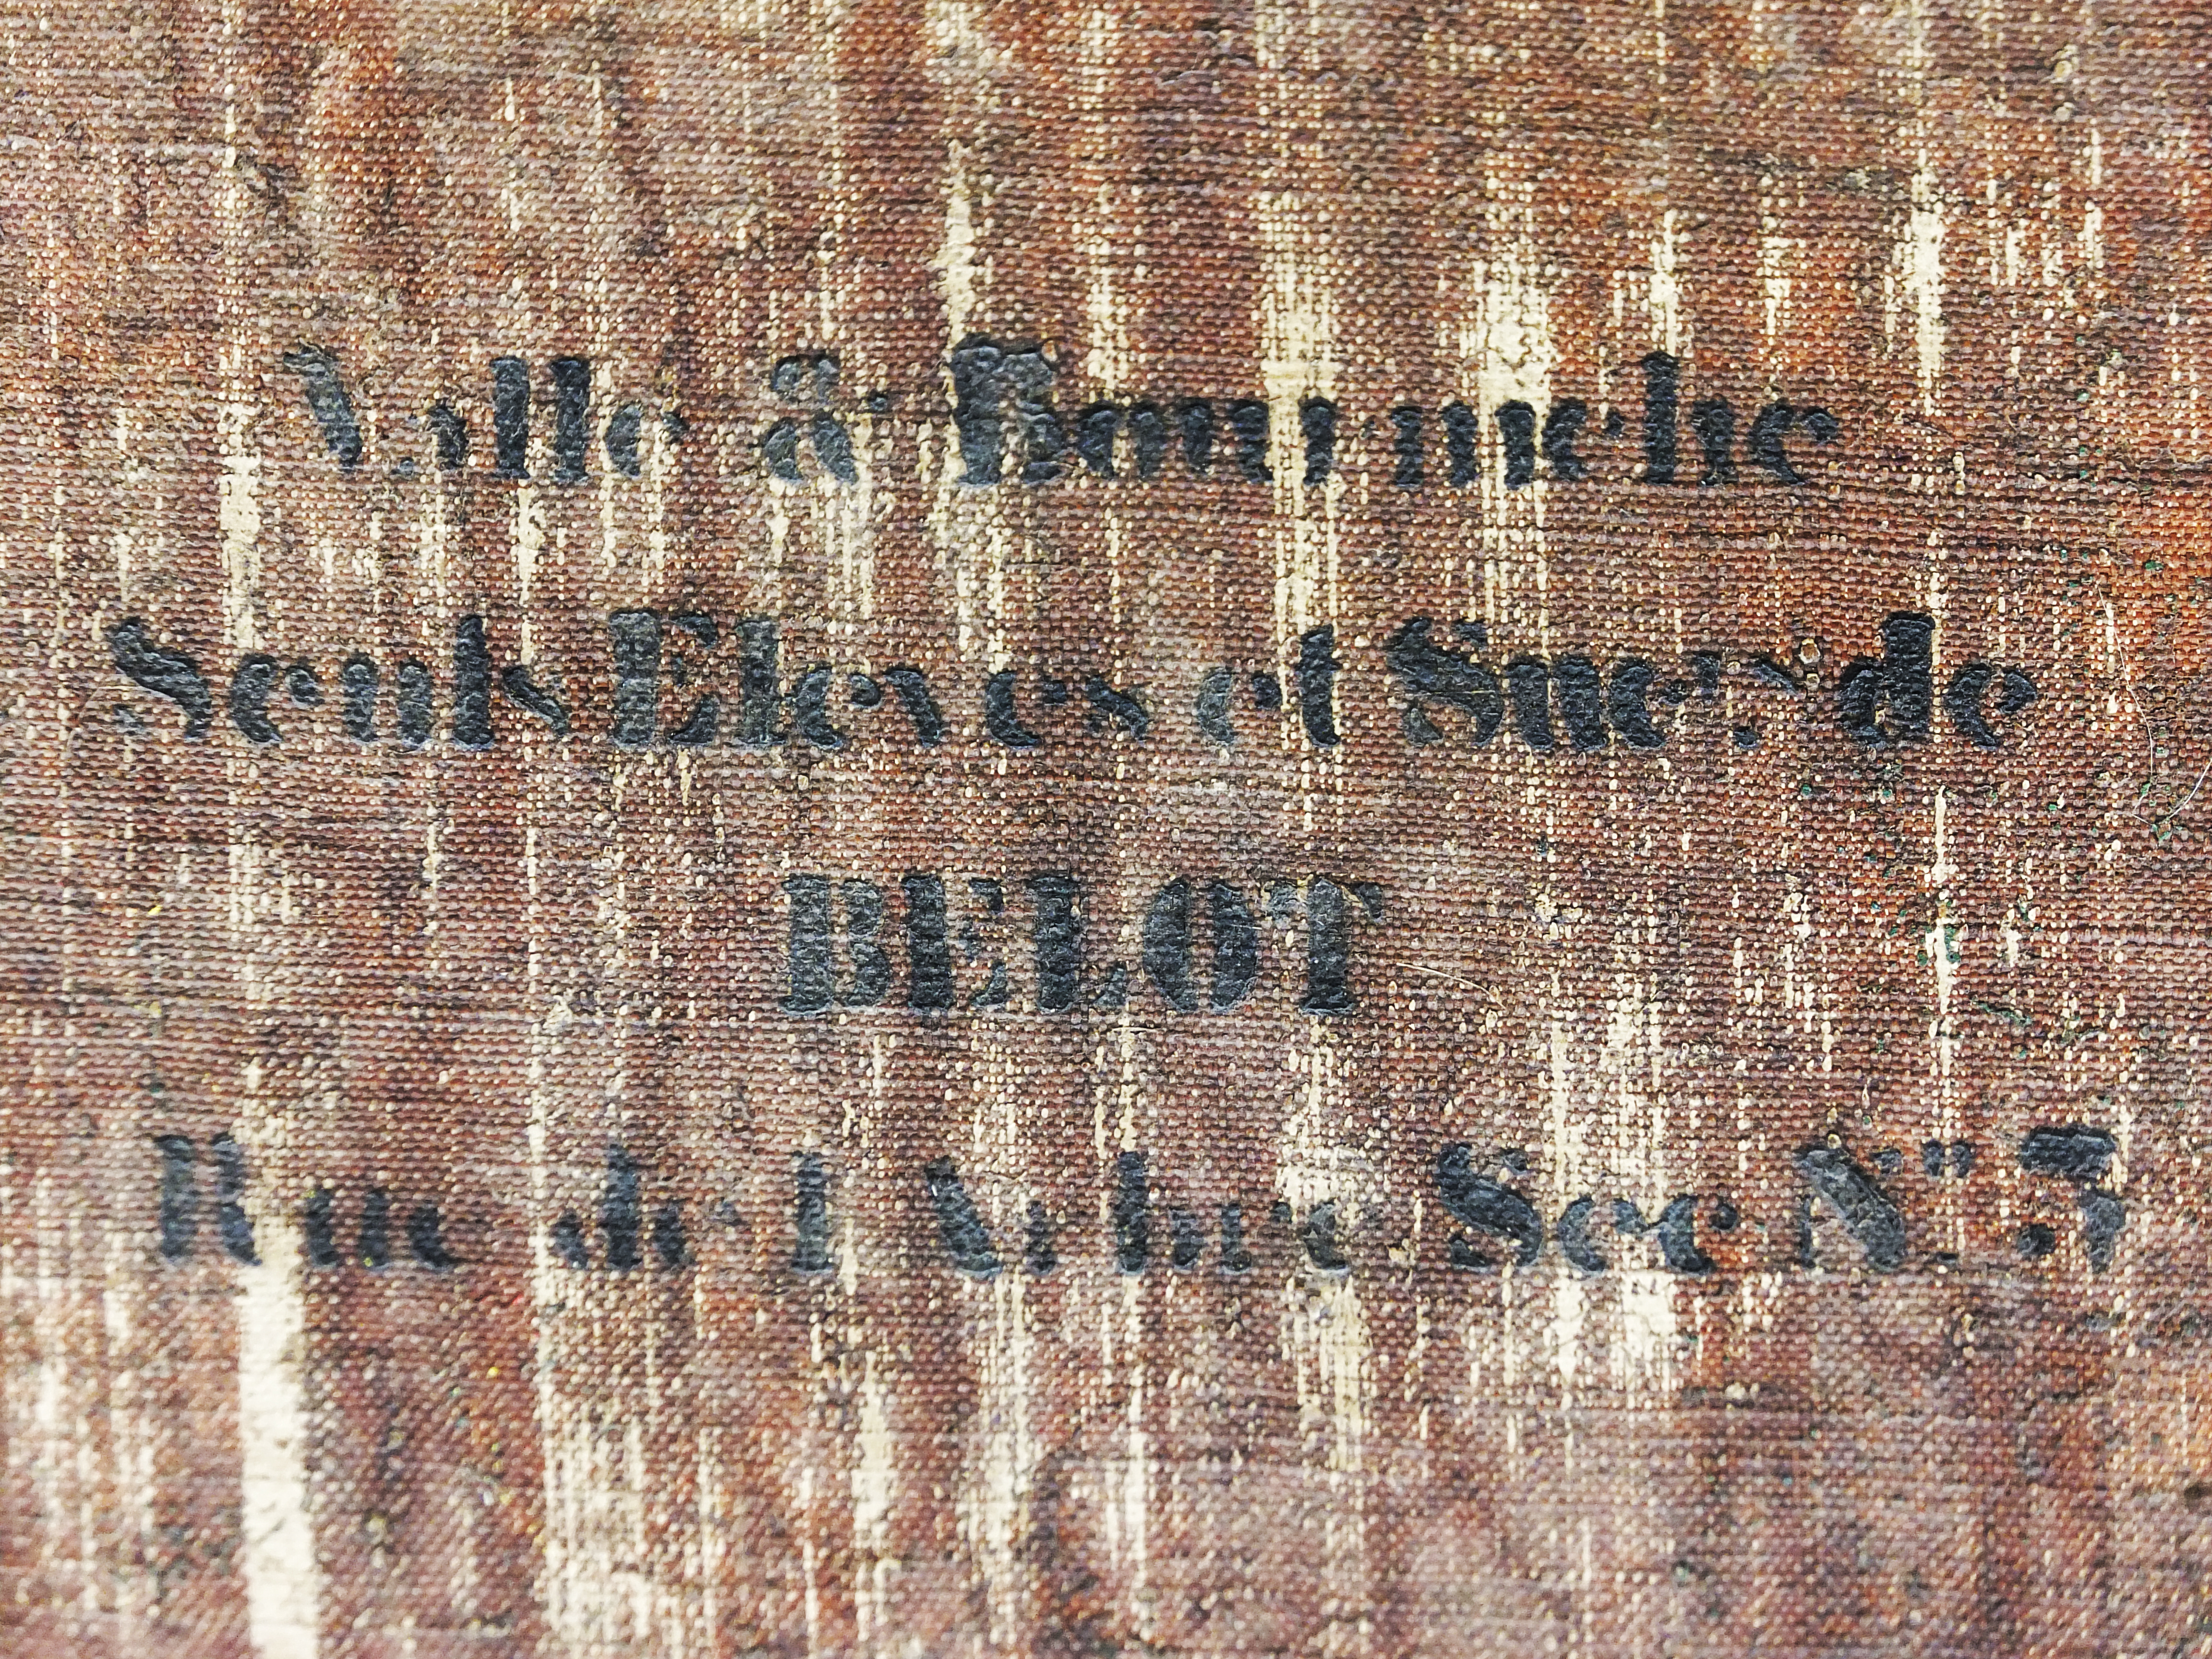 Valle & Bourniche
Seuls Eleves et Suers de
BELOT
Rue de l'Arbre Sec, N° 3